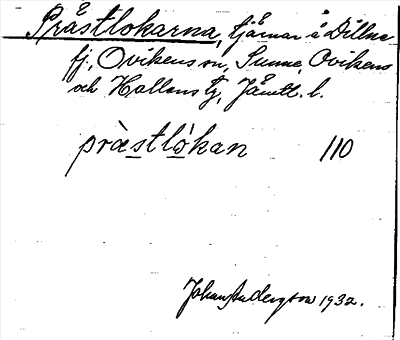 Prästlokarna, tjärnar å Dillne
fj, Ovikens sn, Sunne, Ovikens
och Hallens tg, Jämtl. l.
præstlo̱kan 110
Johan Anderson 1932.